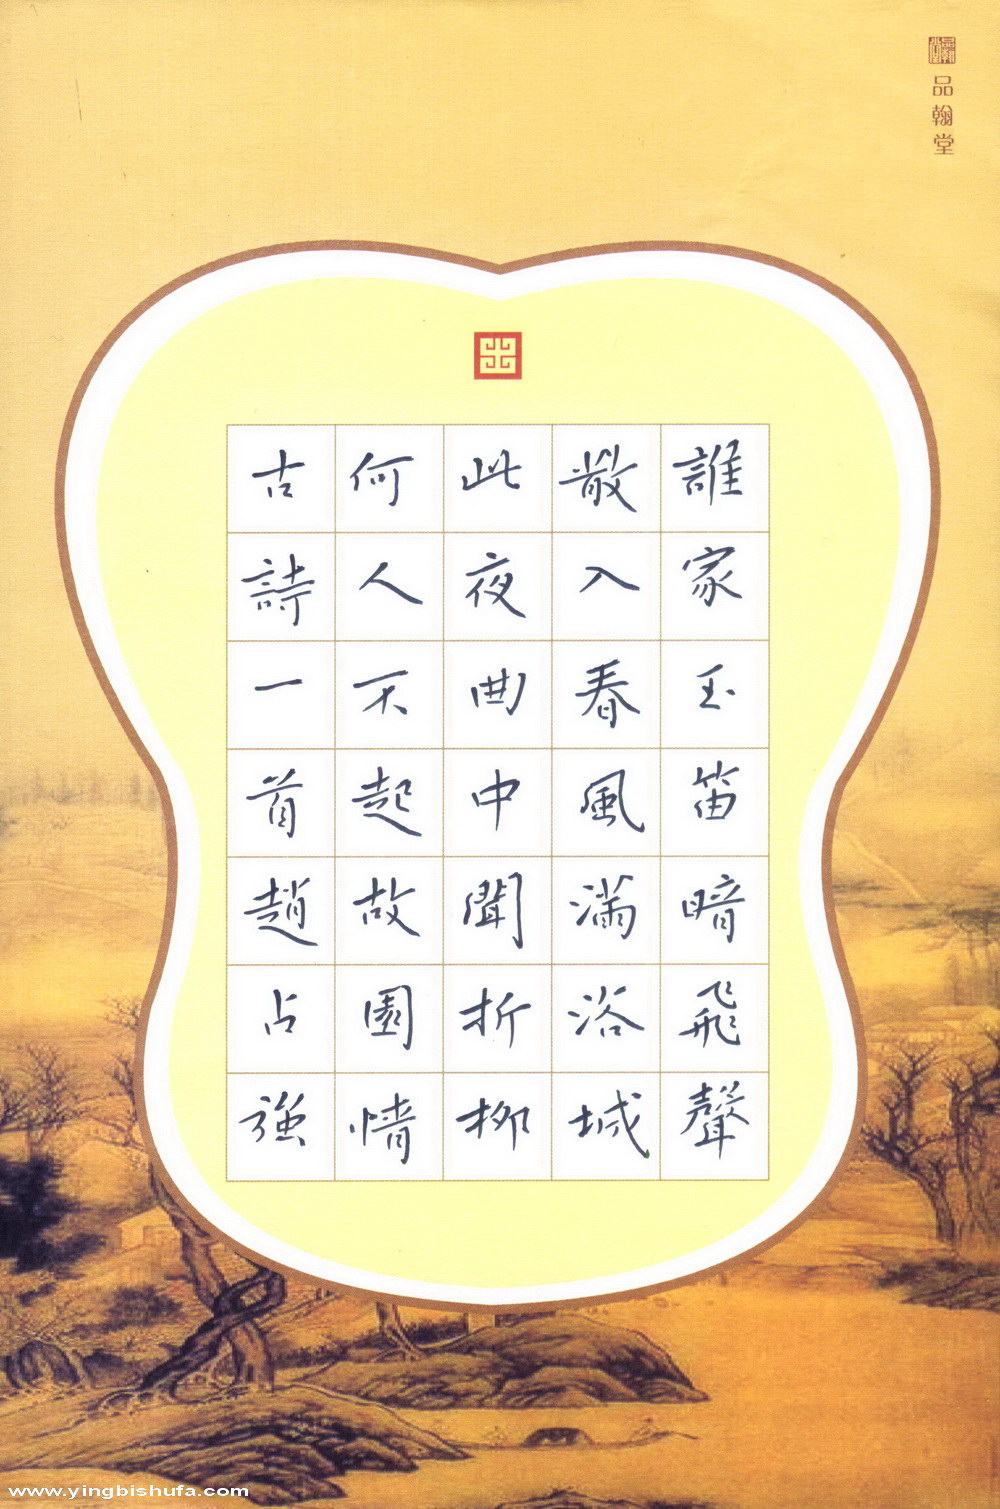 品翰堂
誰家玉笛暗飛聲
散入春風滿浴城
此夜曲中聞折柳
何人不起故園情
古詩一首趙占強
www.yingbishufa.com